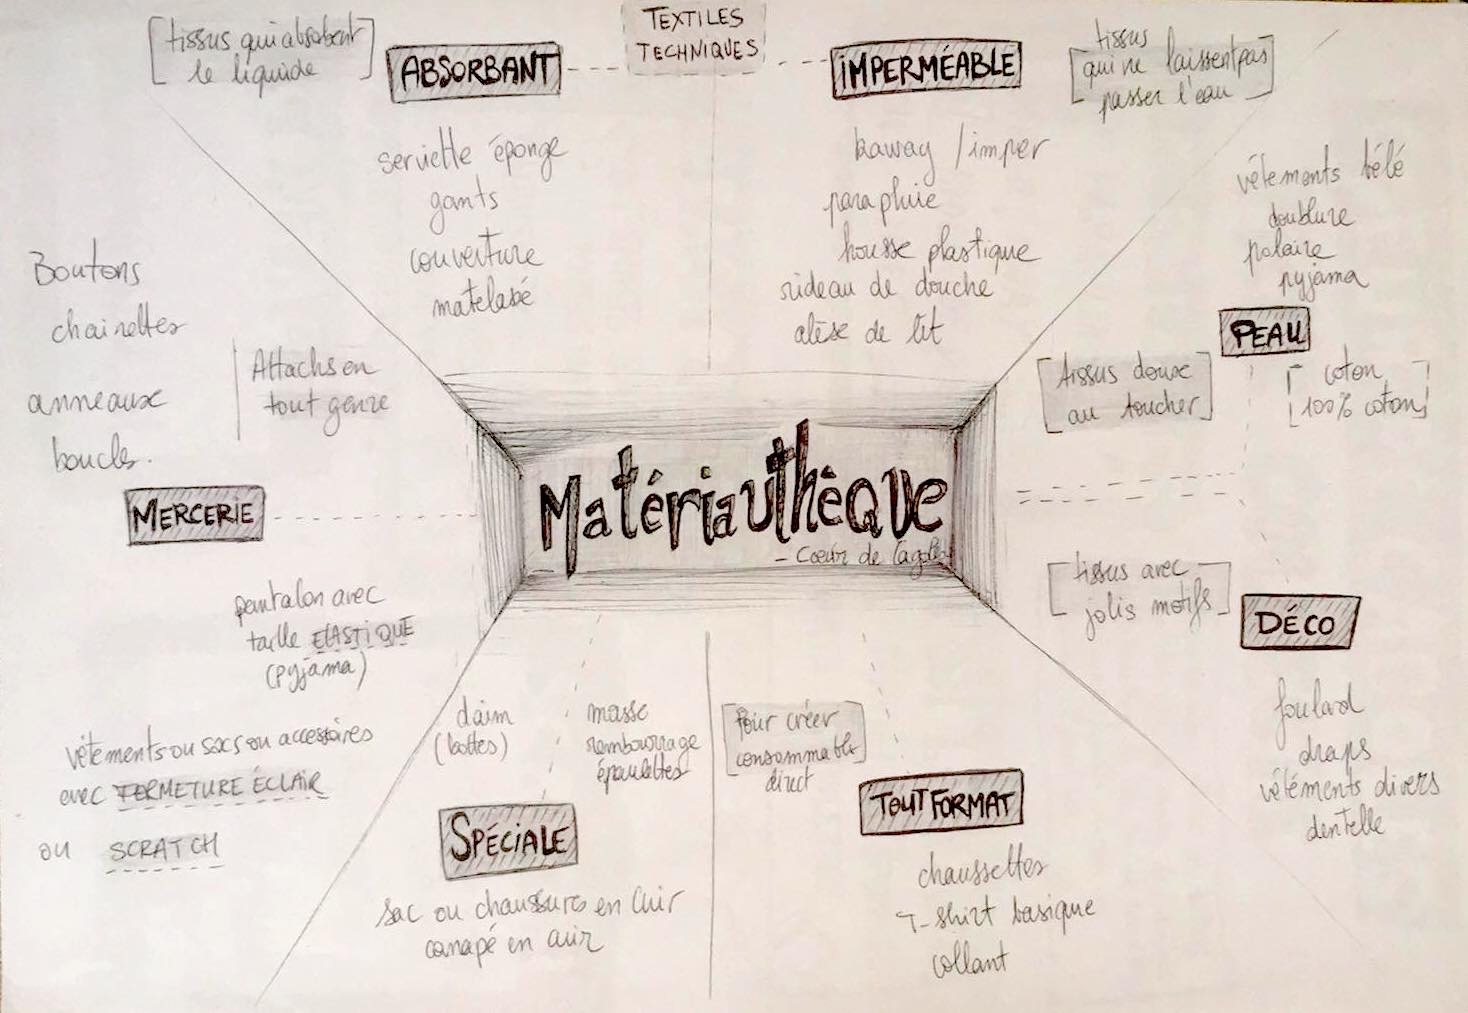 TEXTILES
TECHNIQUES
[tissus qui absorbent
le liquide]
ABSORBANT
serviette éponge
gants
couverture
matelassé
IMPERMÉABLE
[tissus
qui ne laissent pas
passer l'eau]
kaway / imper
parapluie
housse plastique
rideau de douche
alèse de lit
vêtements bébé
doublure
polaire
pyjama
PEAU
[tissus doux
au toucher]
[coton
100% coton]
Boutons
chainettes
anneaux
boucles.
Attachs en
tout genre
MERCERIE
pantalon avec
taille ELASTIQUE
(pyjama)
vêtements ou sacs ou accessoires
avec FERMETURE ÉCLAIR
ou SCRATCH
Matériauthèque
- Coeur de
[tissus avec
jolis motifs]
DÉCO
foulard
draps
vêtéments divers
dentelle
daim
(bottes)
masse
rembourrage
épaulettes
SPÉCIALE
sac ou chaussures en cuir
canapé en cuir
[Pour créer
consommable
direct]
TOUT FORMAT
chaussettes
T-shirt basique
collant